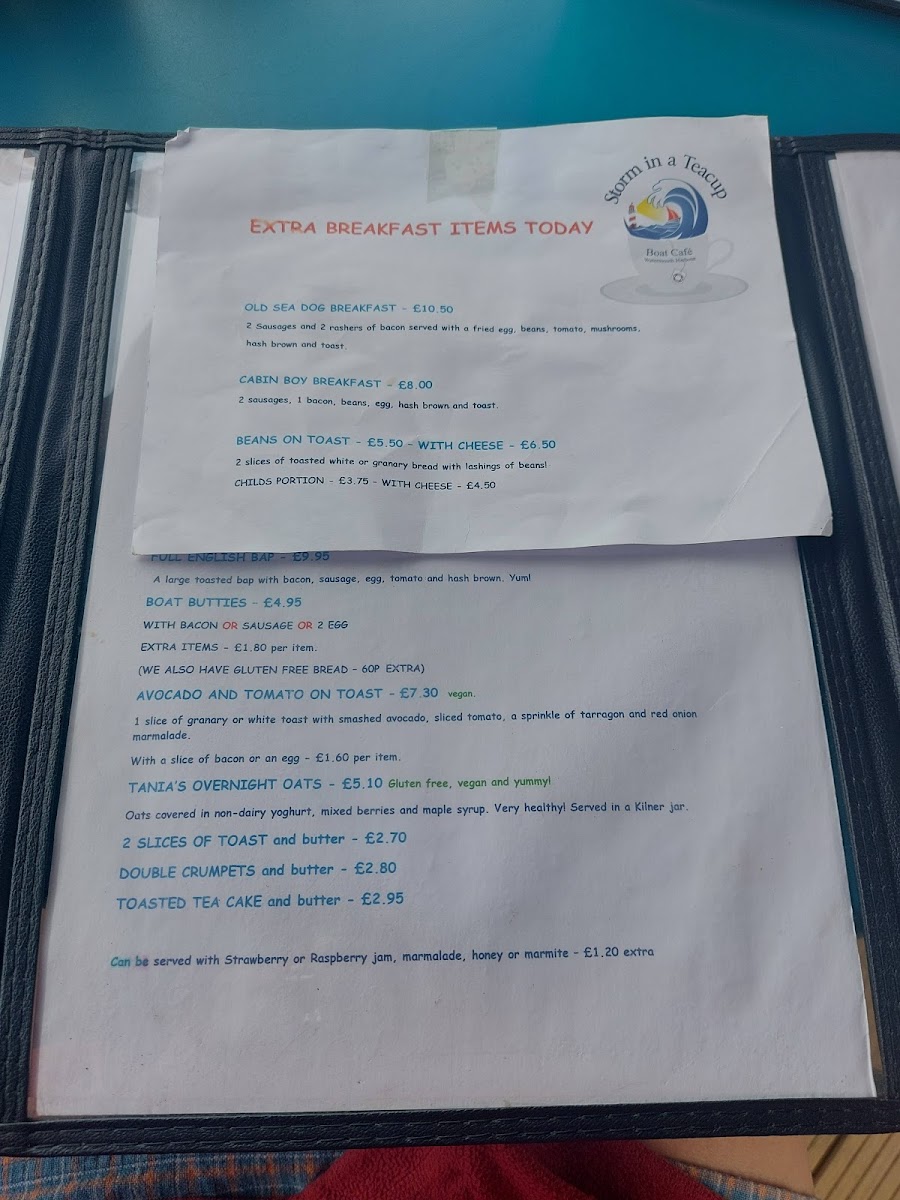 Storm in a Teacup
Boat Café
EXTRA BREAKFAST ITEMS TODAY
OLD SEA DOG BREAKFAST - £10.50
2 Sausages and 2 rashers of bacon served with a fried egg, beans, tomato, mushrooms,
hash brown and toast.
CABIN BOY BREAKFAST - £8.00
2 sausages, 1 bacon, beans, egg, hash brown and toast.
BEANS ON TOAST - £5.50 - WITH CHEESE - £6.50
2 slices of toasted white or granary bread with lashings of beans!
CHILDS PORTION - £3.75 - WITH CHEESE - £4.50
FULL ENGLISH BAP - £9.95
A large toasted bap with bacon, sausage, egg, tomato and hash brown. Yum!
BOAT BUTTIES - £4.95
WITH BACON OR SAUSAGE OR 2 EGG
EXTRA ITEMS - £1.80 per item.
(WE ALSO HAVE GLUTEN FREE BREAD - 60P EXTRA)
AVOCADO AND TOMATO ON TOAST - £7.30 vegan.
1 slice of granary or white toast with smashed avocado, sliced tomato, a sprinkle of tarragon and red onion
marmalade.
With a slice of bacon or an egg - £1.60 per item.
TANIA'S OVERNIGHT OATS - £5.10 Gluten free, vegan and yummy!
Oats covered in non-dairy yoghurt, mixed berries and maple syrup. Very healthy! Served in a Kilner jar.
2 SLICES OF TOAST and butter - £2.70
DOUBLE CRUMPETS and butter - £2.80
TOASTED TEA CAKE and butter - £2.95
Can be served with Strawberry or Raspberry jam, marmalade, honey or marmite - £1.20 extra